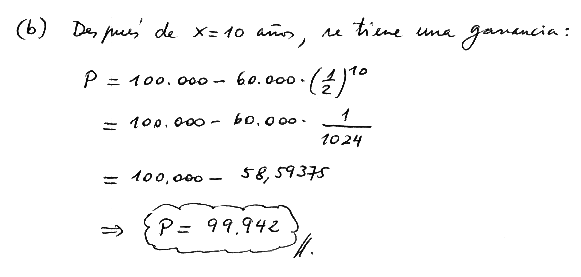 (b) Después de x=10 años, se tiene una ganancia:
P = 100.000 - 60.000 · (1/2)^10
= 100.000 - 60.000 · 1/1024
= 100,000 - 58,59375
⇒ P = 99.942 //.